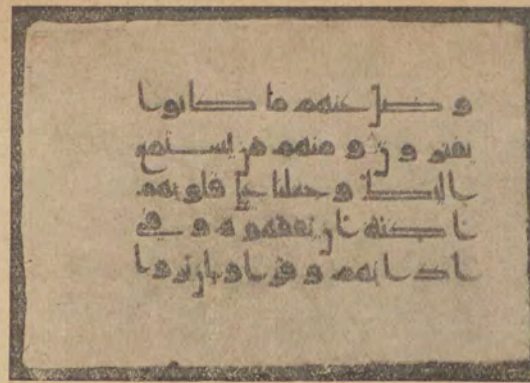 وضل عنهم ما كانوا
يفترون ومنهم من يستمع
اليك وجعلنا على قلوبهم
اكنه ان يفقهوه وفي
اذانهم وقرا وان يروا